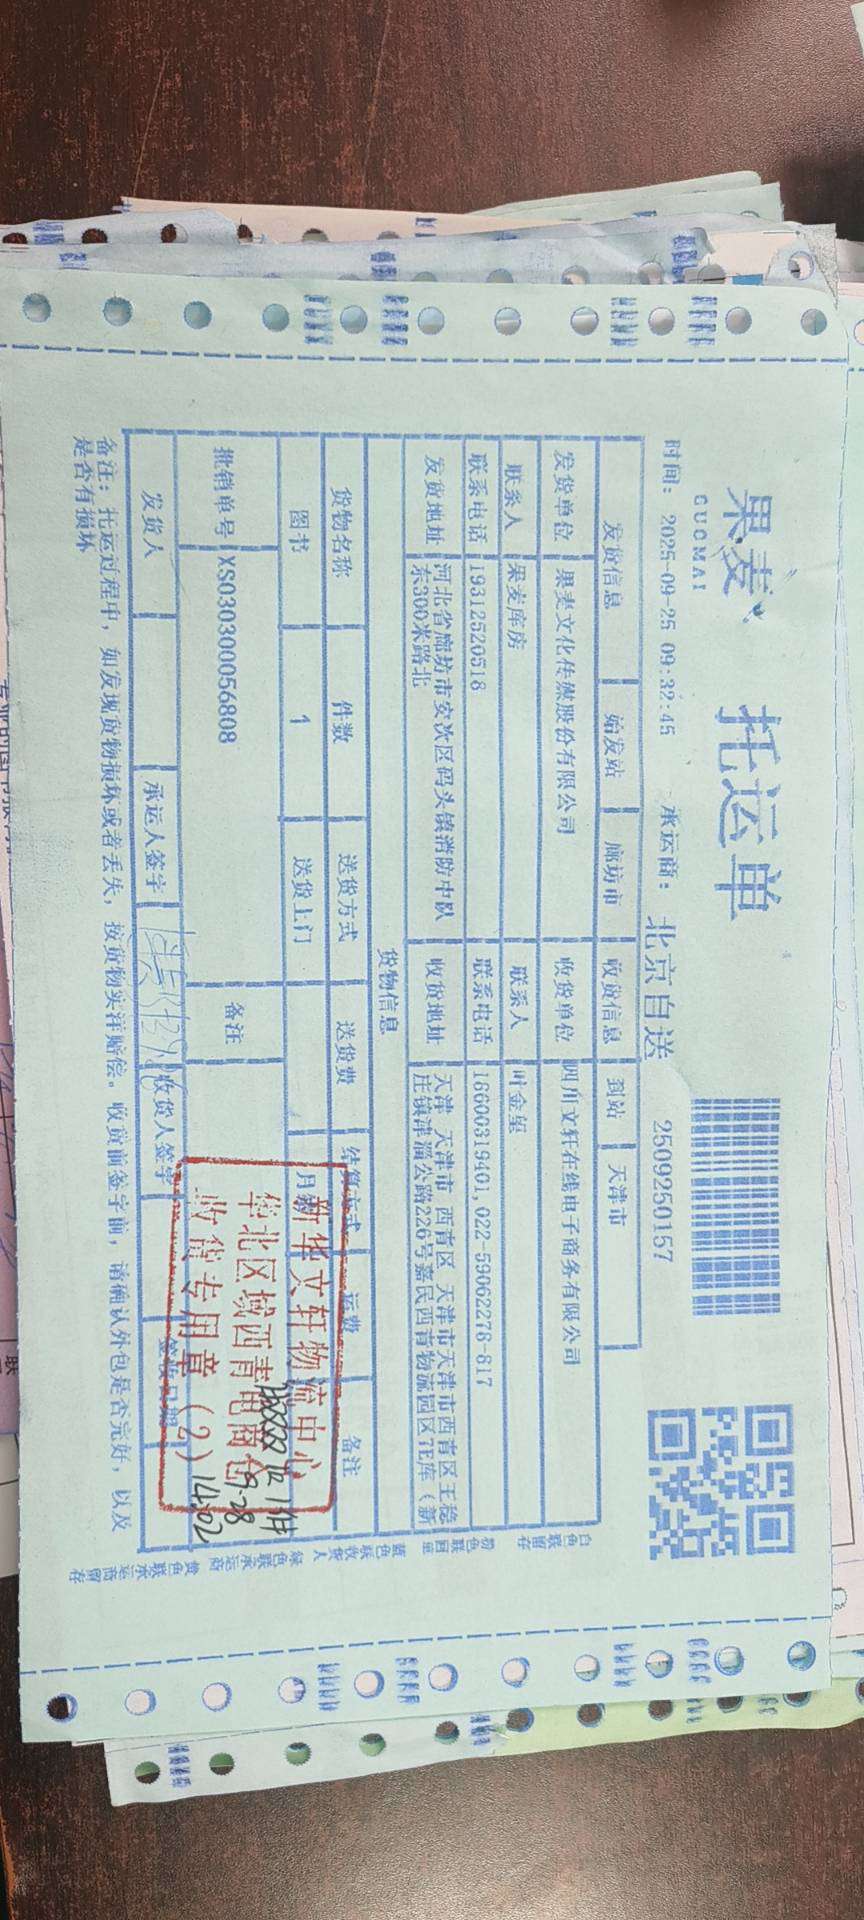 果麦 托运单
GUOMAI
2509250157
时间: 2025-09-25 09:32:45 承运商: 北京自送
发货信息 始发站 廊坊市 收货信息 到站 天津市
发货单位 果麦文化传媒股份有限公司 收货单位 四川文轩在线电子商务有限公司
联系人 果麦库房 联系人 叶金玺
联系电话 19312520518 联系电话 18600319401,022-59062278-817
发货地址 河北省廊坊市安次区码头镇消防中队 收货地址 天津 天津市 西青区 天津市天津市西青区王稳
东300米路北 庄镇津淄公路226号嘉民西青物流园区7E库(新
货物信息
货物名称 件数 送货方式 送货费 结算方式 运费 备注
图书 1 送货上门 月
批销单号 XS030300056808 备注
发货人 承运人签字 收货人签字 签收日期
备注: 托运过程中, 如发现货物损坏或者丢失, 按货物实洋赔偿。收货前签字前, 请确认外包是否完好, 以及
是否有损坏
新华文轩物流中心
华北区域西青电商仓
收货专用章(2)
1件
9.28
14:02
白色联留存 粉色联回单 蓝色联收货人 绿色联承运商 黄色联承运商留存